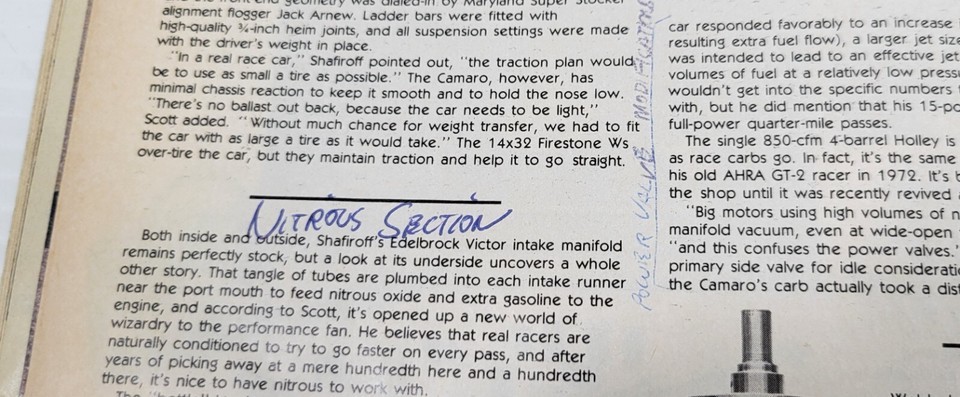 and the front-end geometry was dialed-in by Maryland Super Stocker
alignment flogger Jack Arnew. Ladder bars were fitted with
high-quality ¾-inch heim joints, and all suspension settings were made
with the driver's weight in place.
"In a real race car," Shafiroff pointed out, "the traction plan would
be to use as small a tire as possible." The Camaro, however, has
minimal chassis reaction to keep it smooth and to hold the nose low.
"There's no ballast out back, because the car needs to be light,"
Scott added. "Without much chance for weight transfer, we had to fit
the car with as large a tire as it would take." The 14x32 Firestone Ws
over-tire the car, but they maintain traction and help it to go straight.
NITROUS SECTION
Both inside and outside, Shafiroff's Edelbrock Victor intake manifold
remains perfectly stock, but a look at its underside uncovers a whole
other story. That tangle of tubes are plumbed into each intake runner
near the port mouth to feed nitrous oxide and extra gasoline to the
engine, and according to Scott, it's opened up a new world of
wizardry to the performance fan. He believes that real racers are
naturally conditioned to try to go faster on every pass, and after
years of picking away at a mere hundredth here and a hundredth
there, it's nice to have nitrous to work with.
POWER VALVE MODIFICATIONS
car responded favorably to an increase
resulting extra fuel flow), a larger jet size
was intended to lead to an effective jet
volumes of fuel at a relatively low press
wouldn't get into the specific numbers
with, but he did mention that his 15-po
full-power quarter-mile passes.
The single 850-cfm 4-barrel Holley is
as race carbs go. In fact, it's the same
his old AHRA GT-2 racer in 1972. It's b
the shop until it was recently revived
"Big motors using high volumes of n
manifold vacuum, even at wide-open
"and this confuses the power valves."
primary side valve for idle considerati
the Camaro's carb actually took a dist